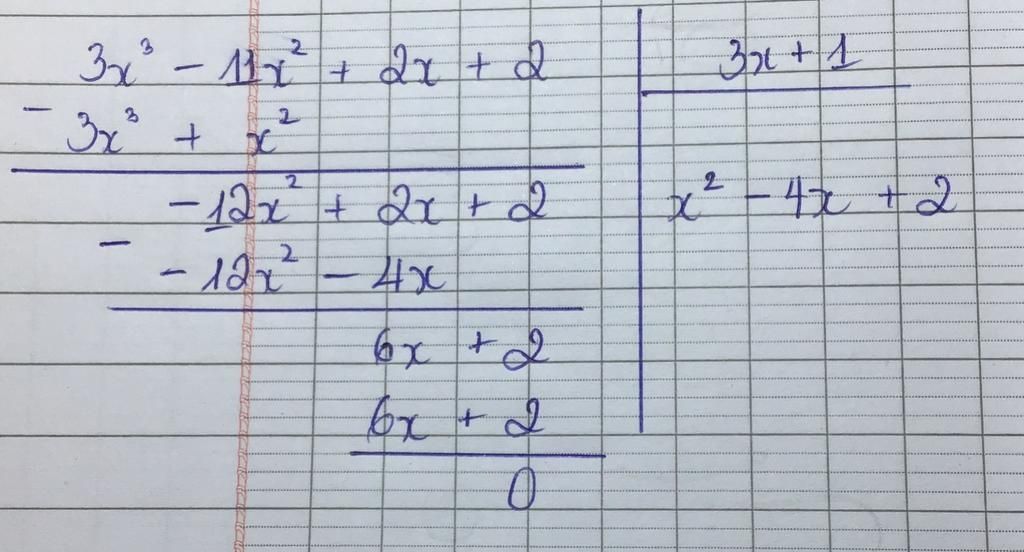 3x³ - 11x² + 2x + 2 | 3x + 1
- 3x³ + x²
-12x² + 2x + 2 | x² - 4x + 2
- -12x² - 4x
6x + 2
6x + 2
0